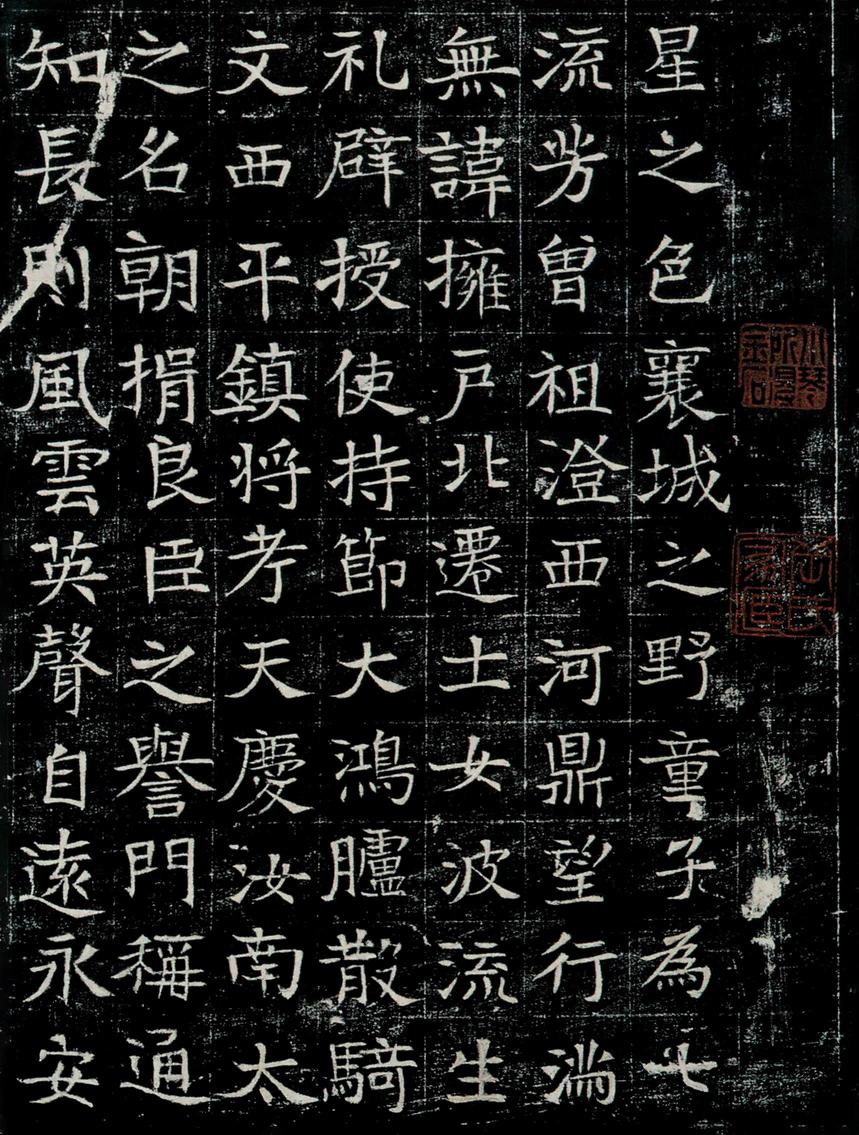 星之色襄城之野童子為七
流芳曾祖澄西河鼎望行湍
無諱擁戶北遷士女波流生
礼辟授使持節大鴻臚散騎
文西平鎮將考天慶汝南太
之名朝揖良臣之譽門稱通
知長則風雲英聲自遠永安